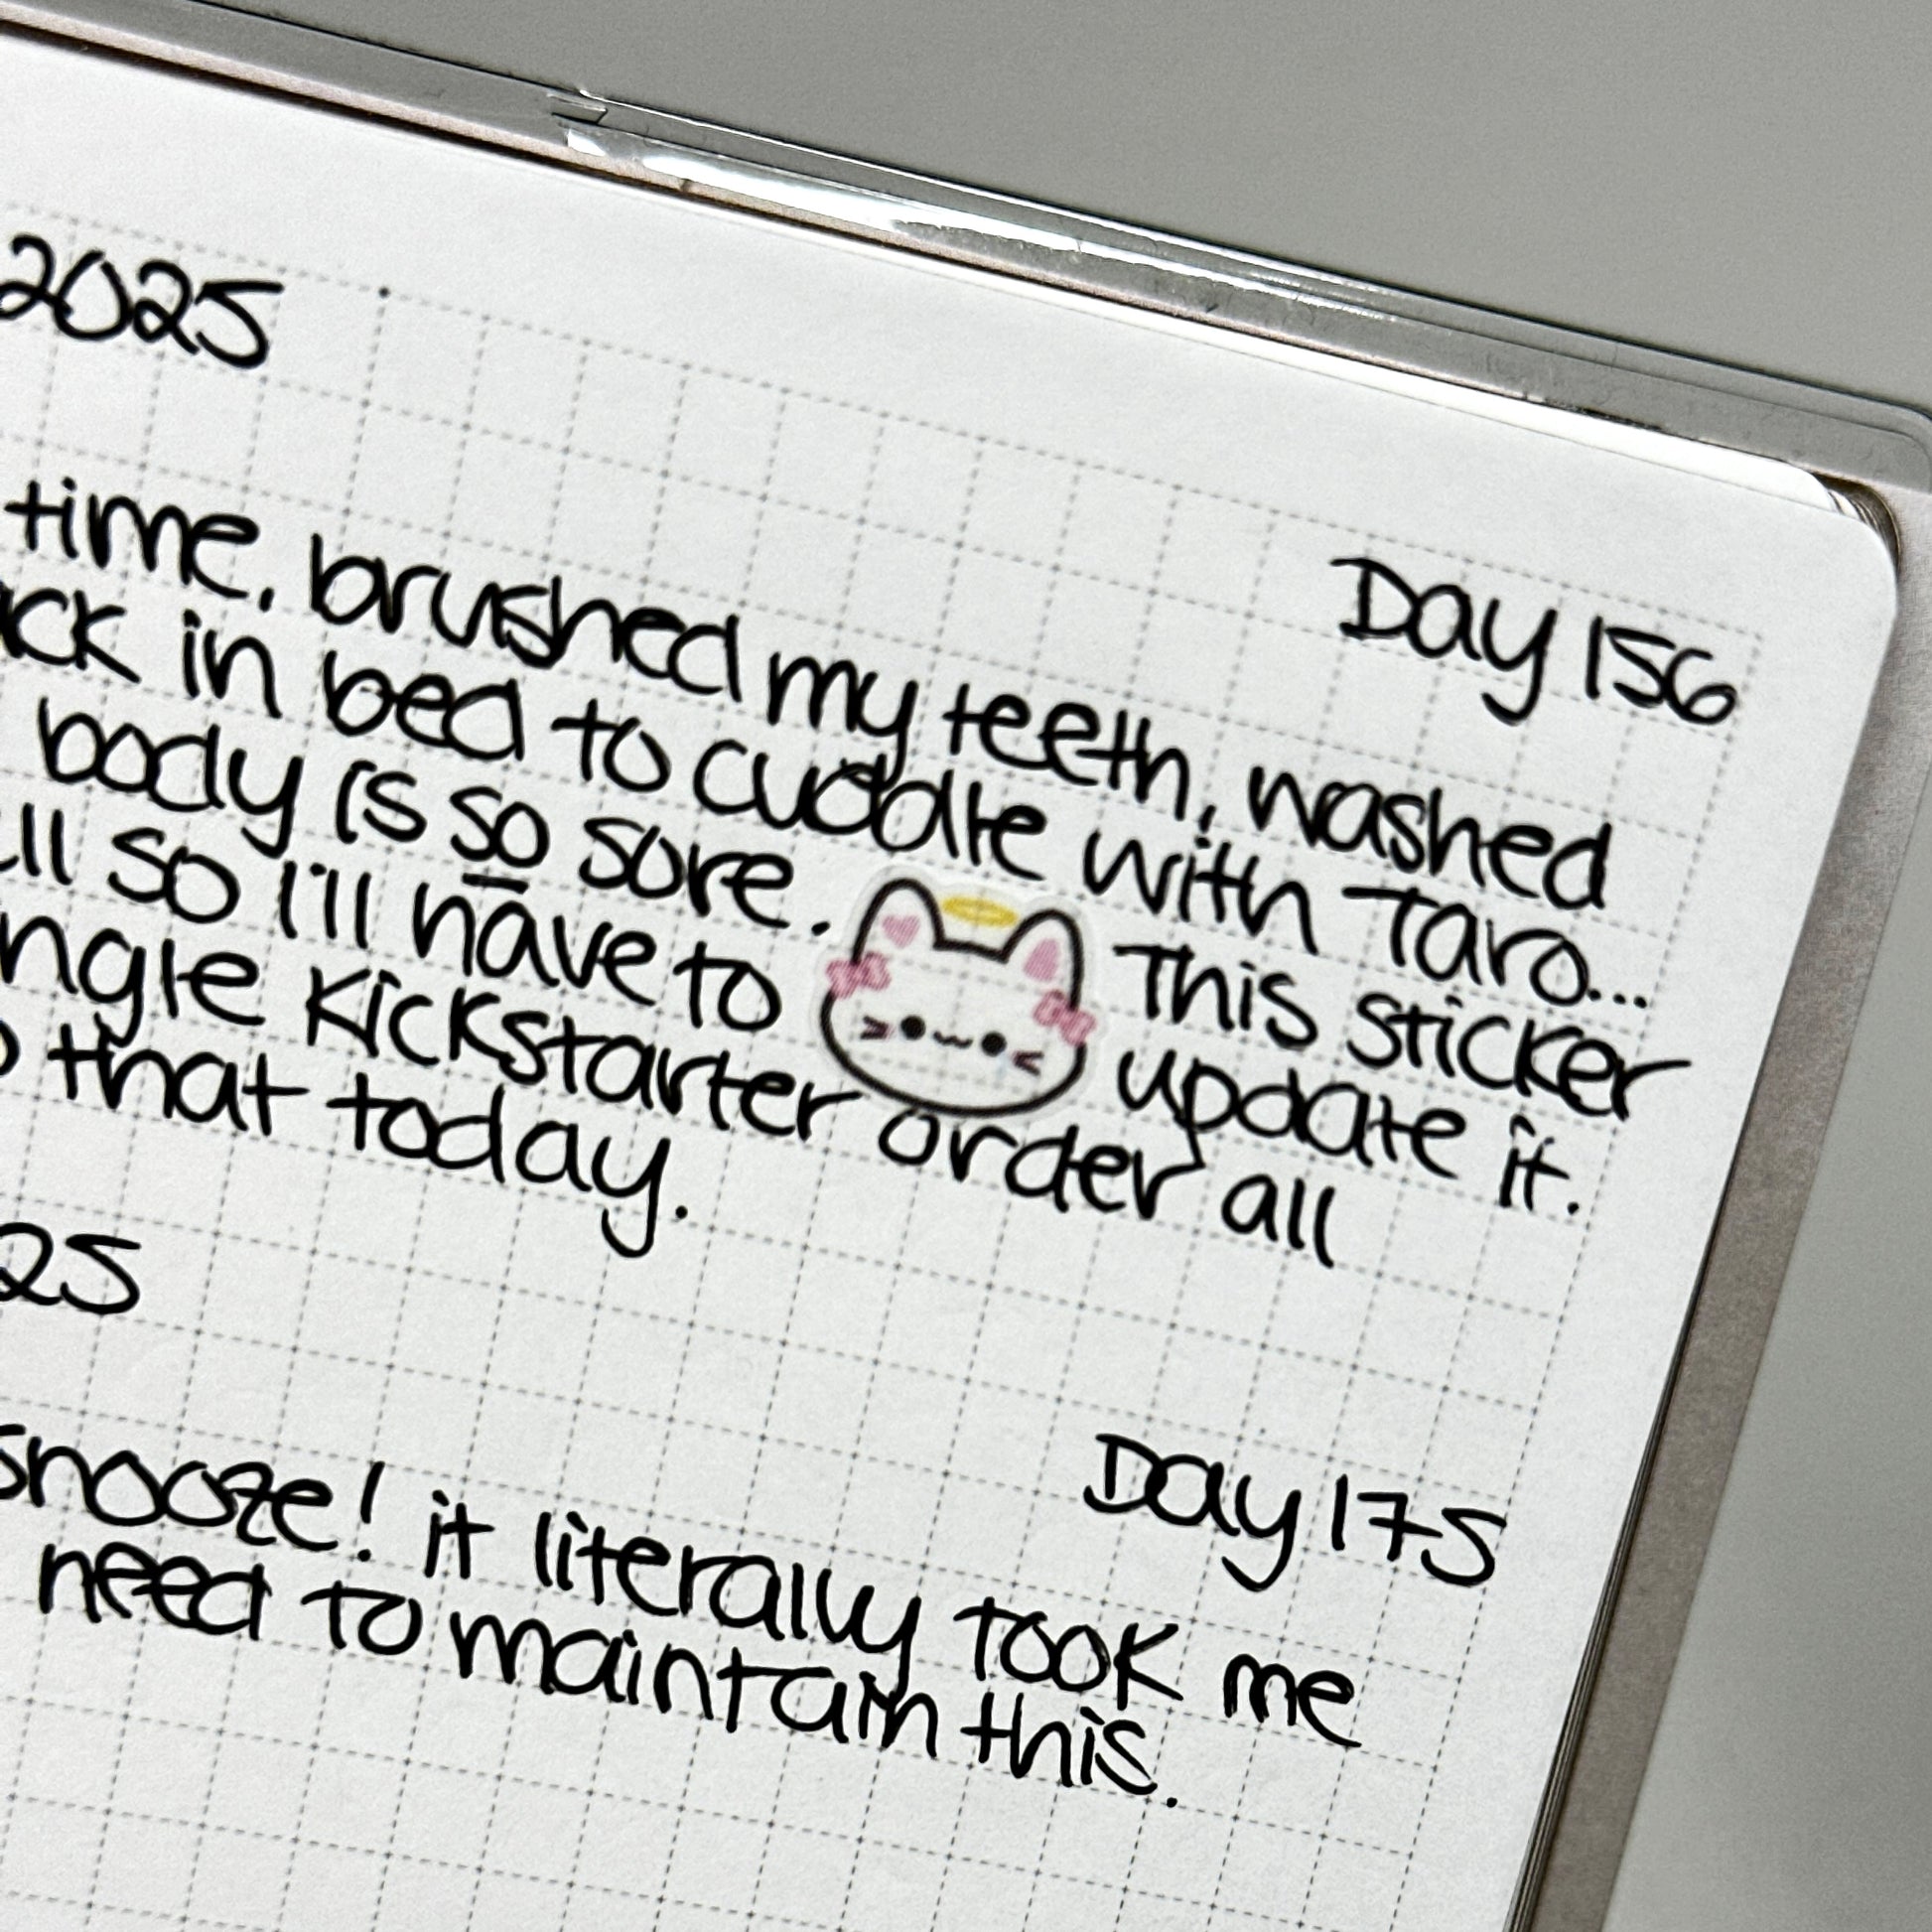 2025
Day 156
time, brushed my teeth, washed
in bed to cuddle with Taro...
body is so sore. This sticker
so I'll have to update it.
Kickstarter order all
that today.
25
Day 175
snooze! it literally took me
need to maintain this.